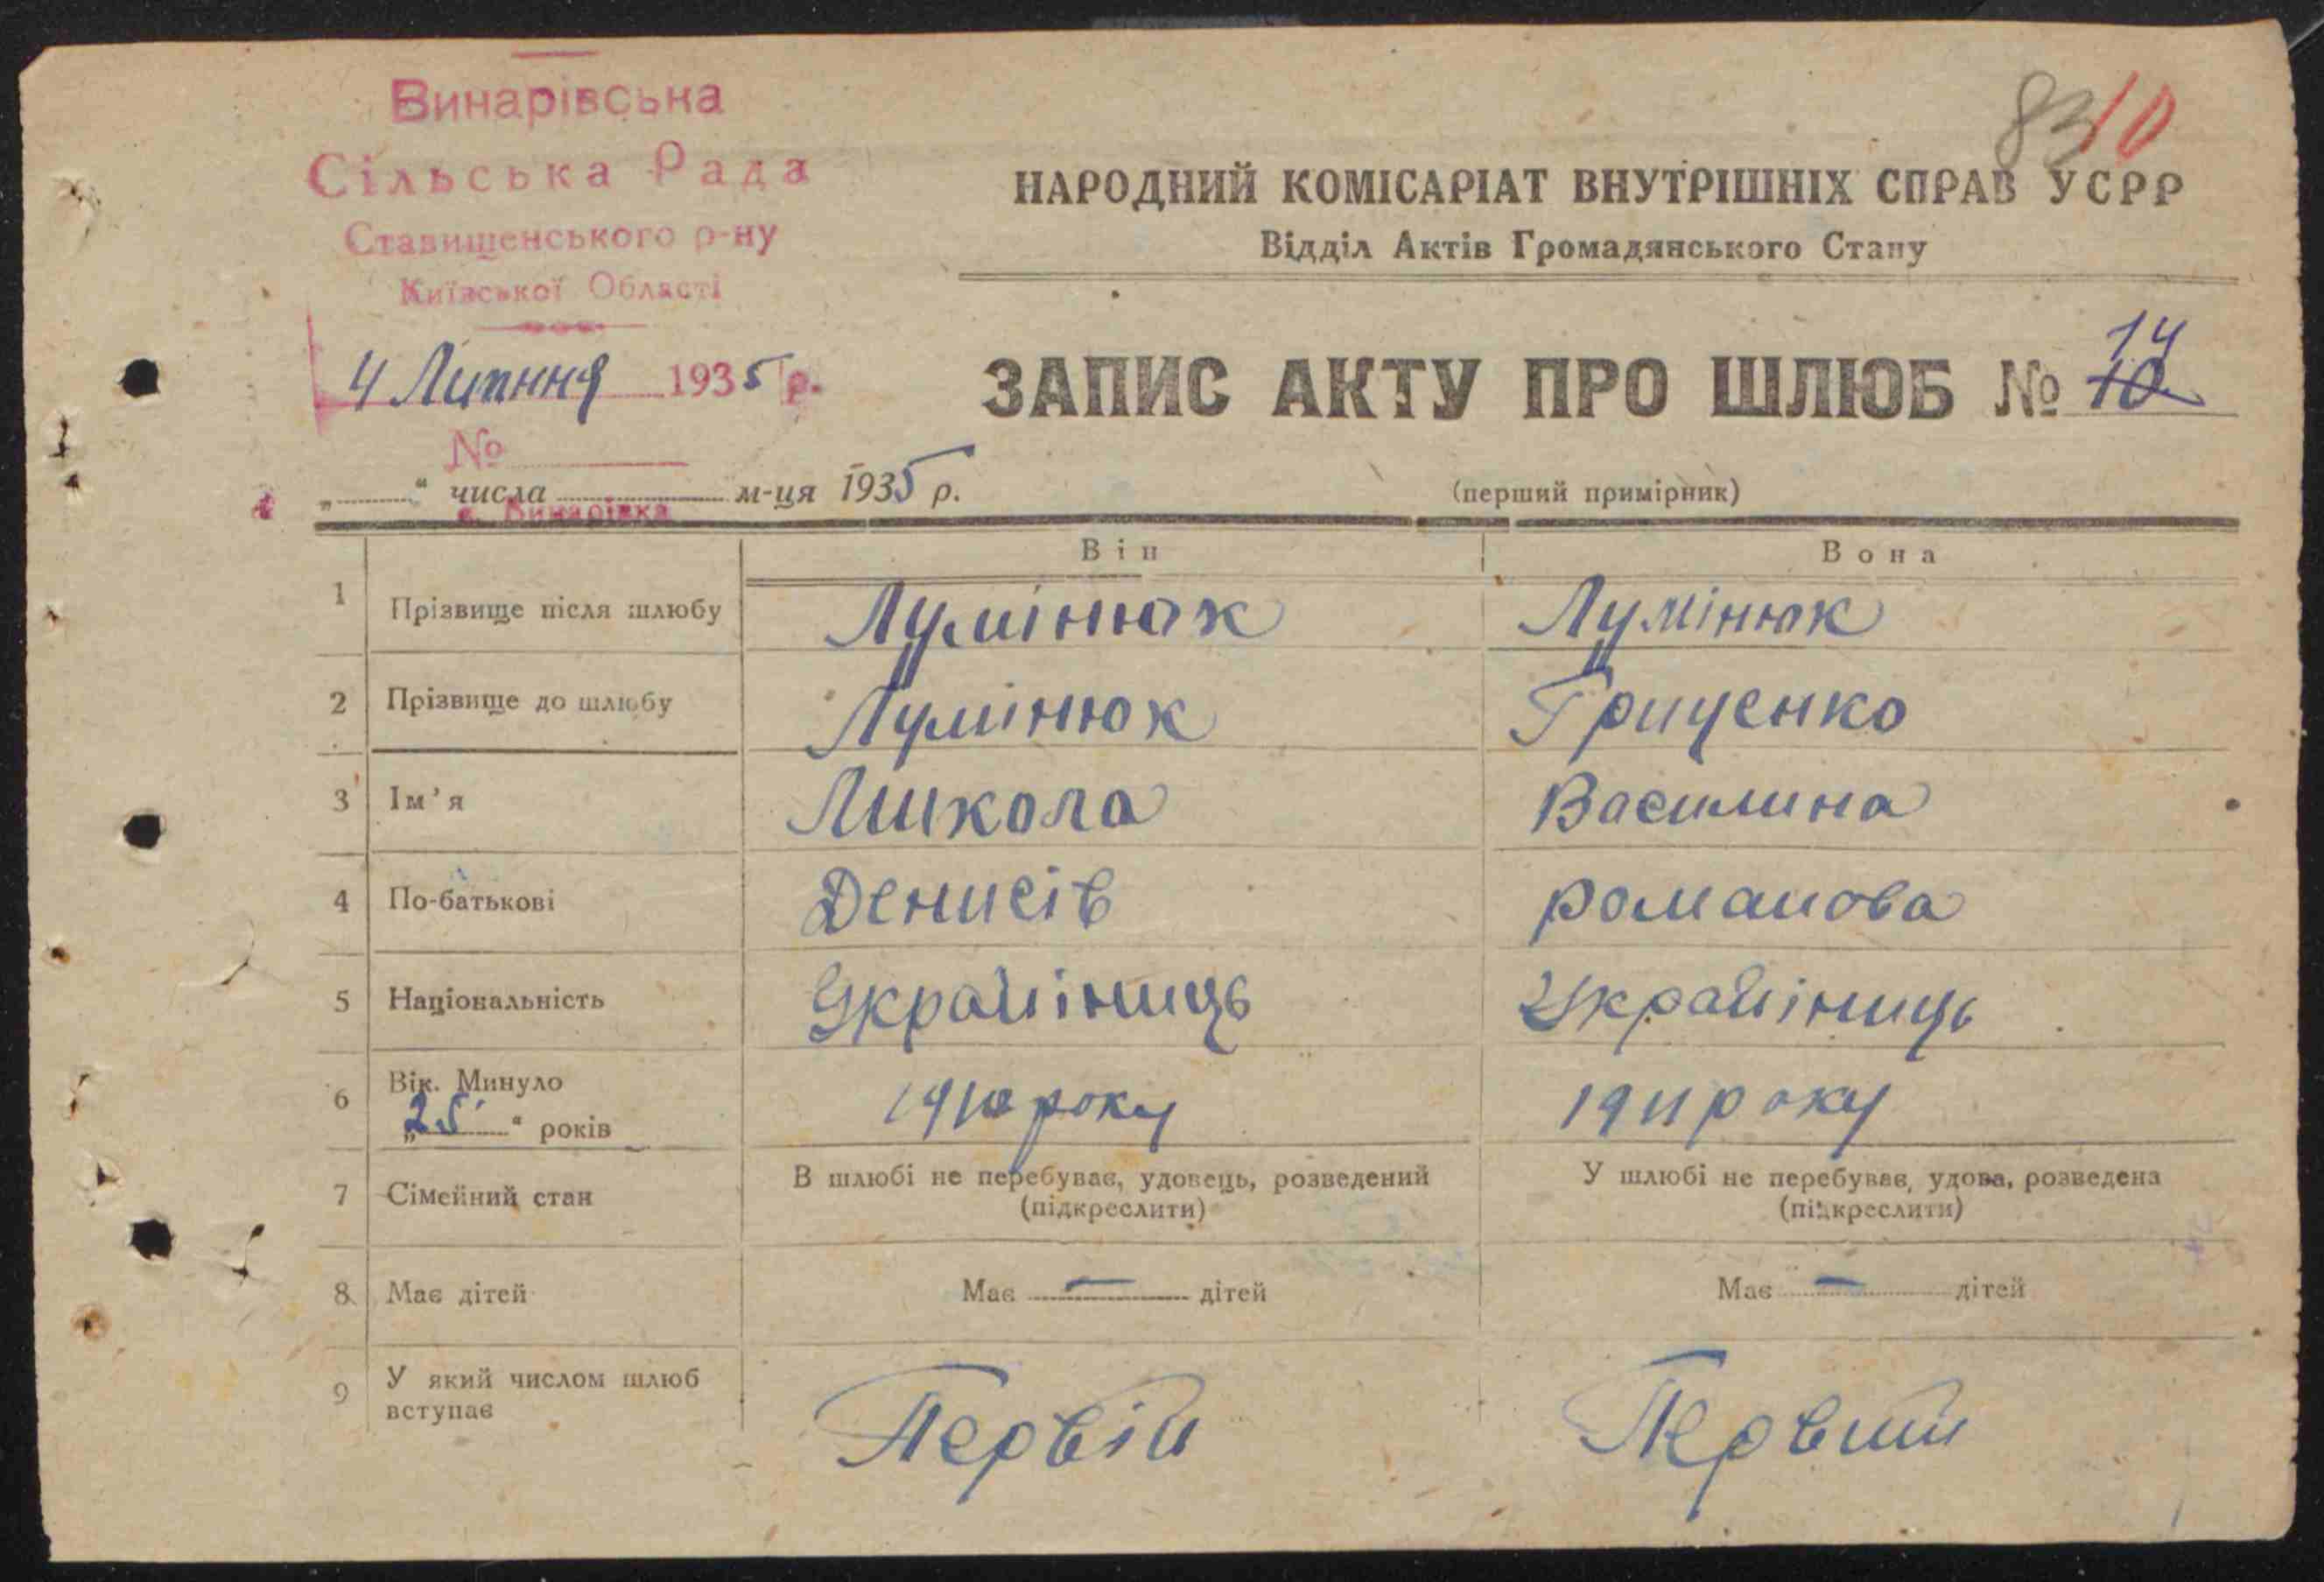 Винарівська
Сільська Рада
Ставищенського р-ну
Київської Області
4 Липння 1935 р.
№
с. Винарівка
83 10
НАРОДНИЙ КОМІСАРІАТ ВНУТРІШНІХ СПРАВ УСРР
Відділ Актів Громадянського Стану
ЗАПИС АКТУ ПРО ШЛЮБ № 10 14
„ “ числа м-ця 1935 р.
(перший примірник)
Він Вона
1 Прізвище після шлюбу Лумінюк Лумінюк
2 Прізвище до шлюбу Лумінюк Гриценко
3 Ім’я Микола Василина
4 По-батькові Денисів Романова
5 Національність Украйіниць Украйіниць
6 Вік. Минуло „25“ років 1910 року 1911 року
7 Сімейний стан В шлюбі не перебуває, удовець, розведений (підкреслити) У шлюбі не перебуває, удова, розведена (підкреслити)
8 Має дітей Має — дітей Має — дітей
9 У який числом шлюб вступає Первій Первий